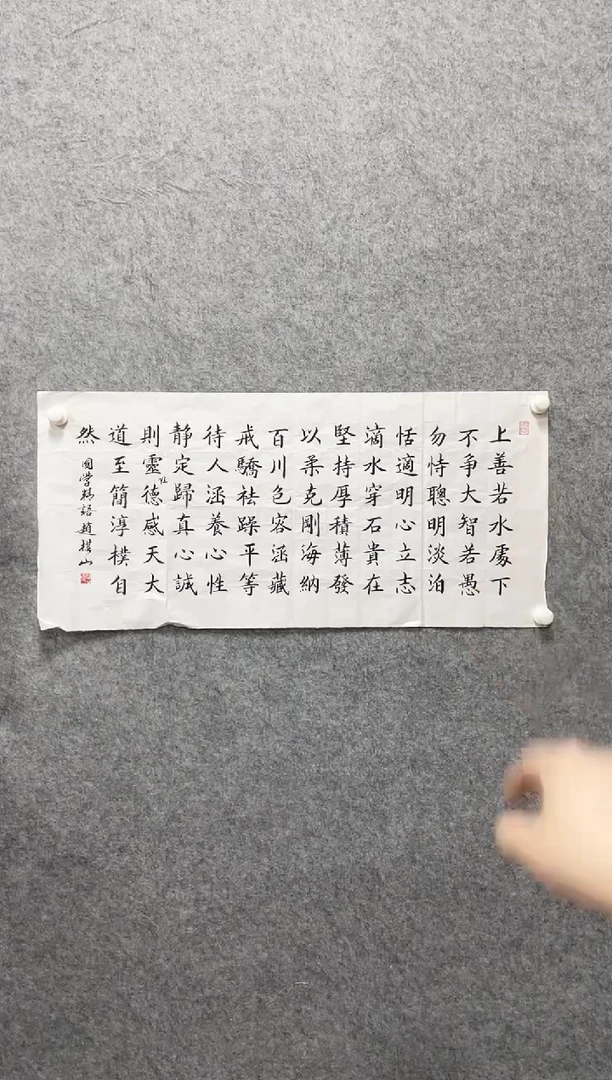 上善若水處下
不争大智若愚
勿恃聰明淡泊
恬適明心立志
滴水穿石貴在
堅持厚積薄發
以柔克剛海納
百川包容涵藏
戒驕袪躁平等
待人涵養心性
静定歸真心誠
則靈德感天大
道至簡淳樸自
然
趙樸山